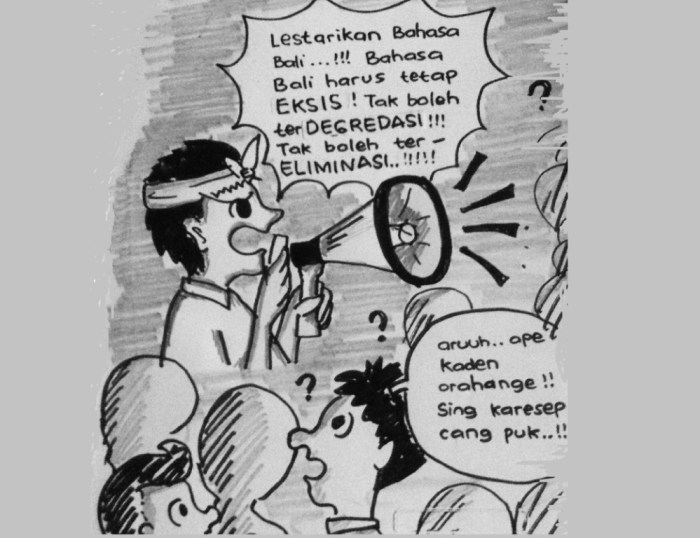 Lestarikan Bahasa
Bali...!!! Bahasa
Bali harus tetap
EKSIS! Tak boleh
terDEGREDASI!!!
Tak boleh ter-
ELIMINASI..!!!!!
?
?
?
aruuh.. ape
kaden
orahange!!
Sing karesep
cang puk..!!